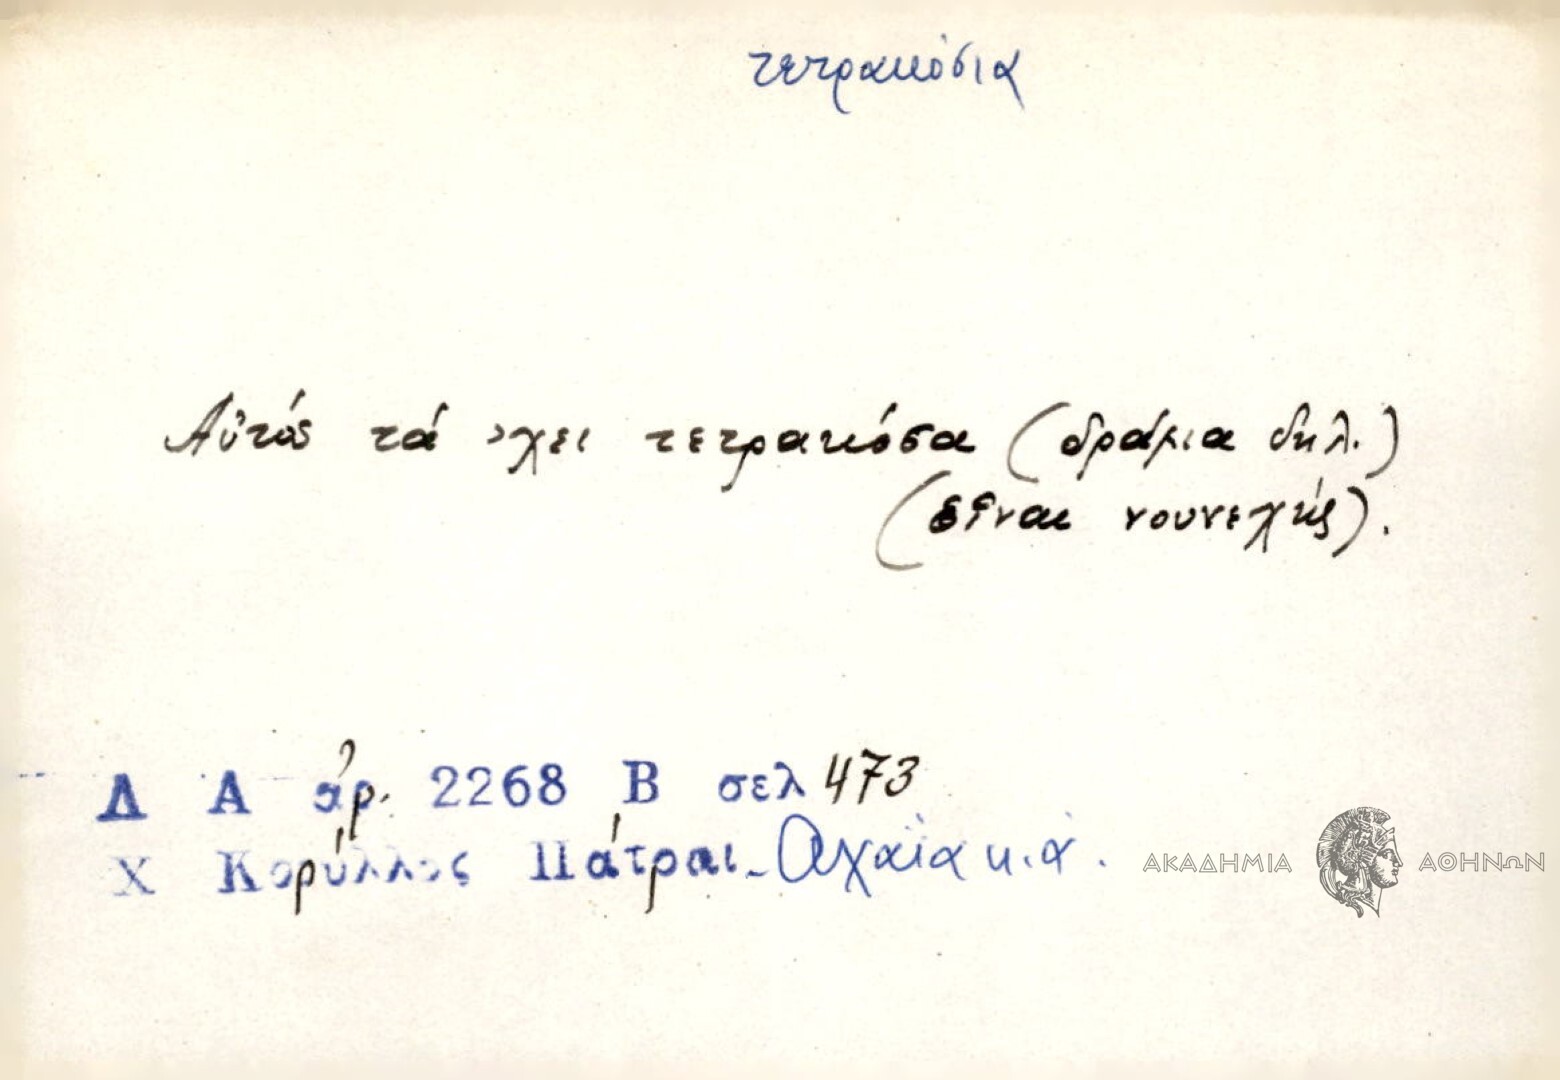 τετρακόσια
Αὐτός τά 'χει τετρακόσα (δράμια δηλ.)
(εἶναι νουνεχής).
Δ Α ἀρ. 2268 Β σελ 473
Χ Κορύλλος Πάτραι - Ἀχαΐα κ.ἀ.
ΑΚΑΔΗΜΙΑ ΑΘΗΝΩΝ